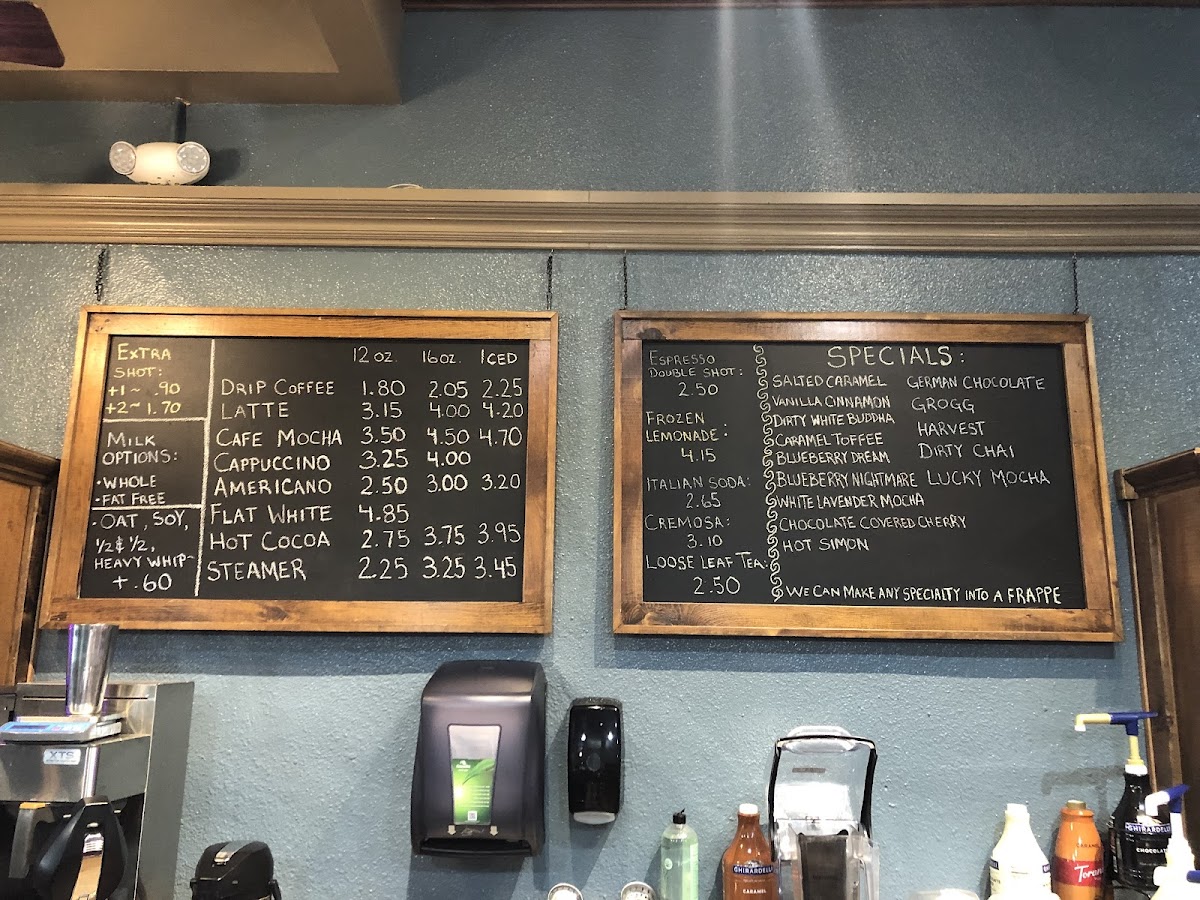 EXTRA
SHOT:
+1~ .90
+2~1.70
MILK
OPTIONS:
•WHOLE
•FAT FREE
•OAT, SOY,
½ & ½,
HEAVY WHIP~
+.60
12 oz. 16 oz. ICED
DRIP COFFEE 1.80 2.05 2.25
LATTE 3.15 4.00 4.20
CAFE MOCHA 3.50 4.50 4.70
CAPPUCCINO 3.25 4.00
AMERICANO 2.50 3.00 3.20
FLAT WHITE 4.85
HOT COCOA 2.75 3.75 3.95
STEAMER 2.25 3.25 3.45
ESPRESSO
DOUBLE SHOT:
2.50
FROZEN
LEMONADE:
4.15
ITALIAN SODA:
2.65
CREMOSA:
3.10
LOOSE LEAF TEA:
2.50
SPECIALS:
SALTED CARAMEL
VANILLA CINNAMON
DIRTY WHITE BUDDHA
CARAMEL TOFFEE
BLUEBERRY DREAM
BLUEBERRY NIGHTMARE
WHITE LAVENDER MOCHA
CHOCOLATE COVERED CHERRY
HOT SIMON
GERMAN CHOCOLATE
GROGG
HARVEST
DIRTY CHAI
LUCKY MOCHA
WE CAN MAKE ANY SPECIALTY INTO A FRAPPE
XTS
GHIRARDELLI
CARAMEL
CARAMEL
Torani
GHIRARDELLI
CHOCOLATE